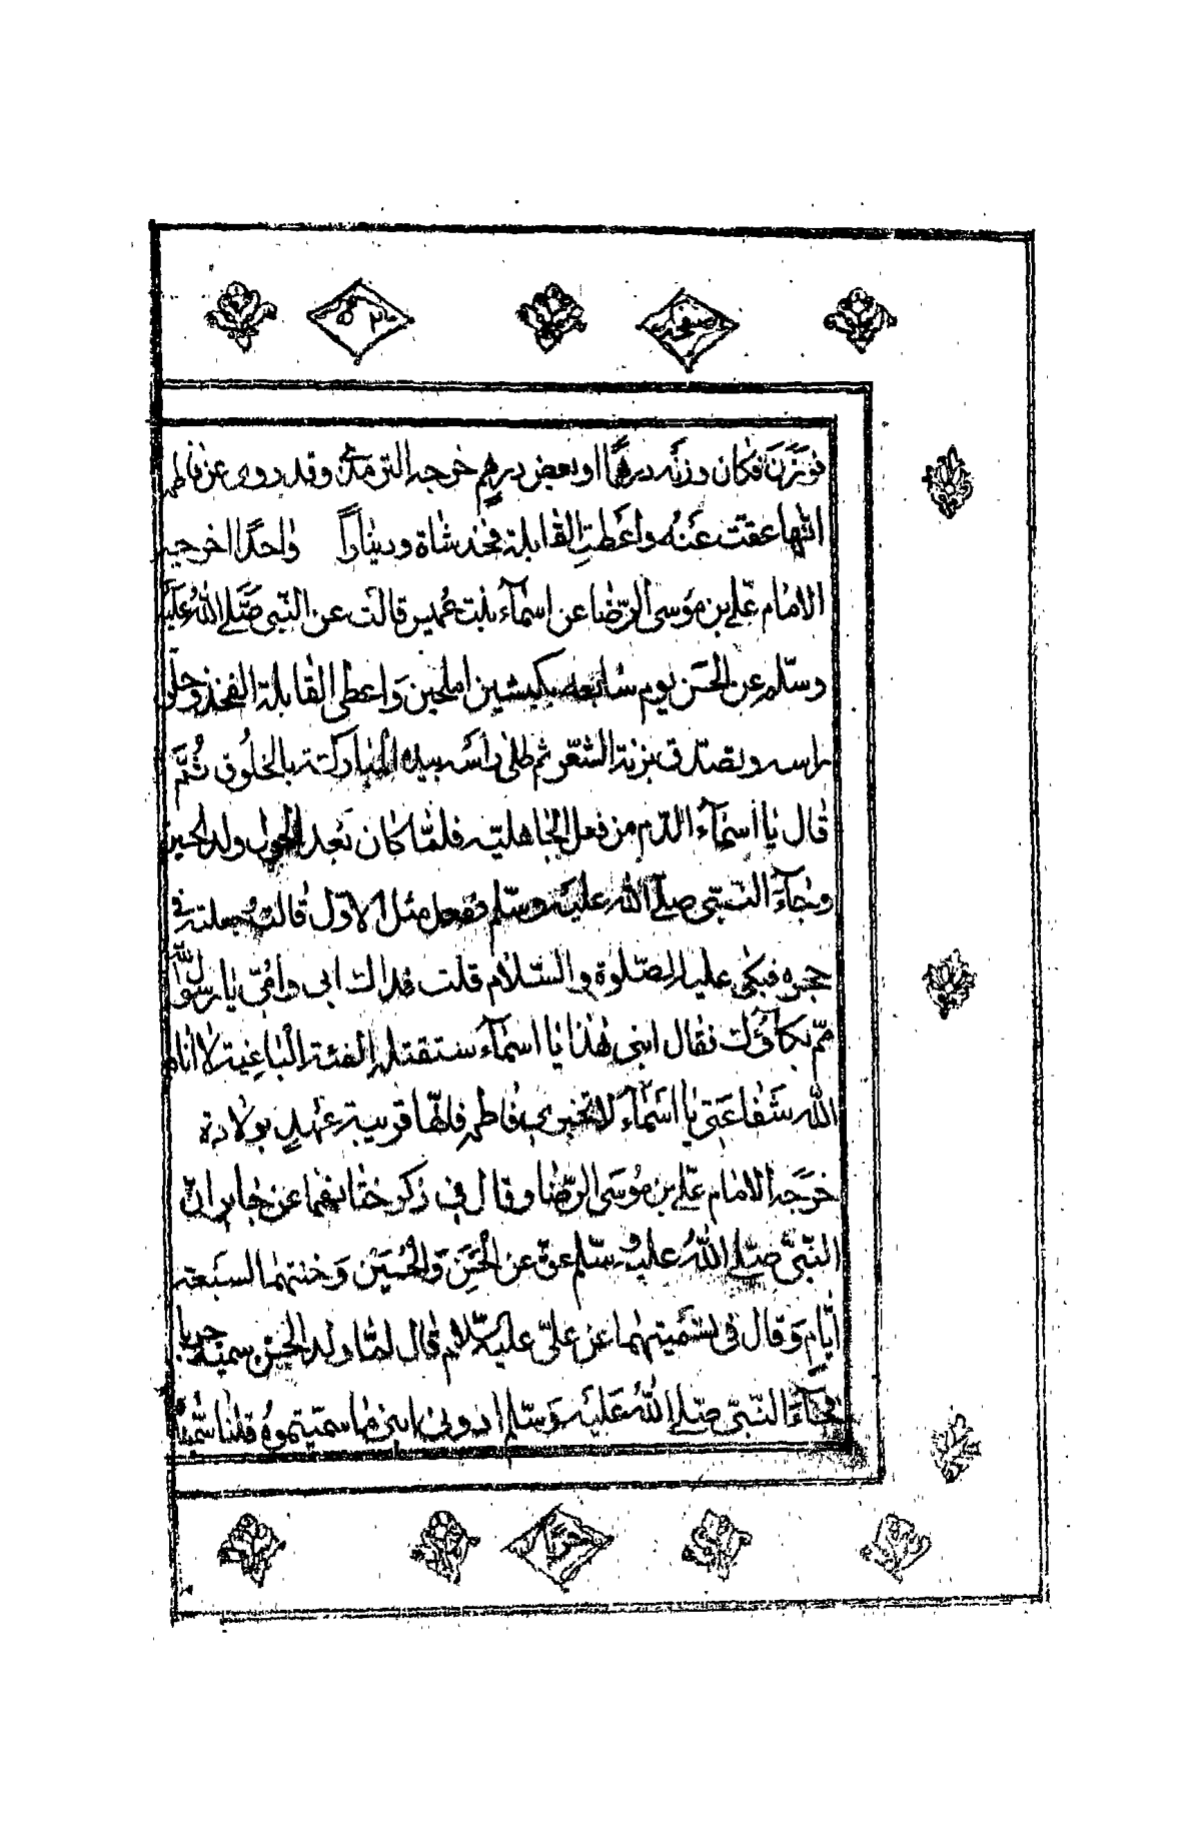 صفحه
فوزن فكان وزنه درهما او بعض درهم خرجه الترمذى وقد روى عن فاطمه
انها عقت عنه واعطت القابلة فخذ شاة ودينارا واحدا اخرجه
الامام علي بن موسى الرضا عن اسمآء بنت عميس قالت عن النبي صلى الله عليه
وسلم عن الحسن يوم سابعه بكبشين املحين واعطى القابلة الفخذ وحلق
راسه وتصدق بزنة الشعر ثم طلى راسه بيده المباركة بالخلوق ثم
قال يا اسمآء الدم من فعل الجاهلية فلما كان بعد الحول ولد الحسين
وجآء النبي صلى الله عليه وسلم ففعل مثل الاول قالت وجعلته فى
حجره فبكى عليه الصلوة والسلام قلت فداك ابى وامى يا رسول الله
مم بكاؤك فقال ابنى هذا يا اسمآء ستقتله الفئة الباغية لا انالهم
الله شفاعتى يا اسمآء لا تخبرى فاطمه فانها قريبة عهد بولادة
خرجه الامام علي بن موسى الرضا وقال فى ذكر ختانهما عن جابر ان
النبي صلى الله عليه وسلم عق عن الحسن والحسين وختنهما السبعة
ايام وقال فى تسميتهما عن علي عليه السلام قال لما ولد الحسن سميته حربا
فجآء النبي صلى الله عليه وسلم ارونى ابنى ما سميتموه قلنا سميناه